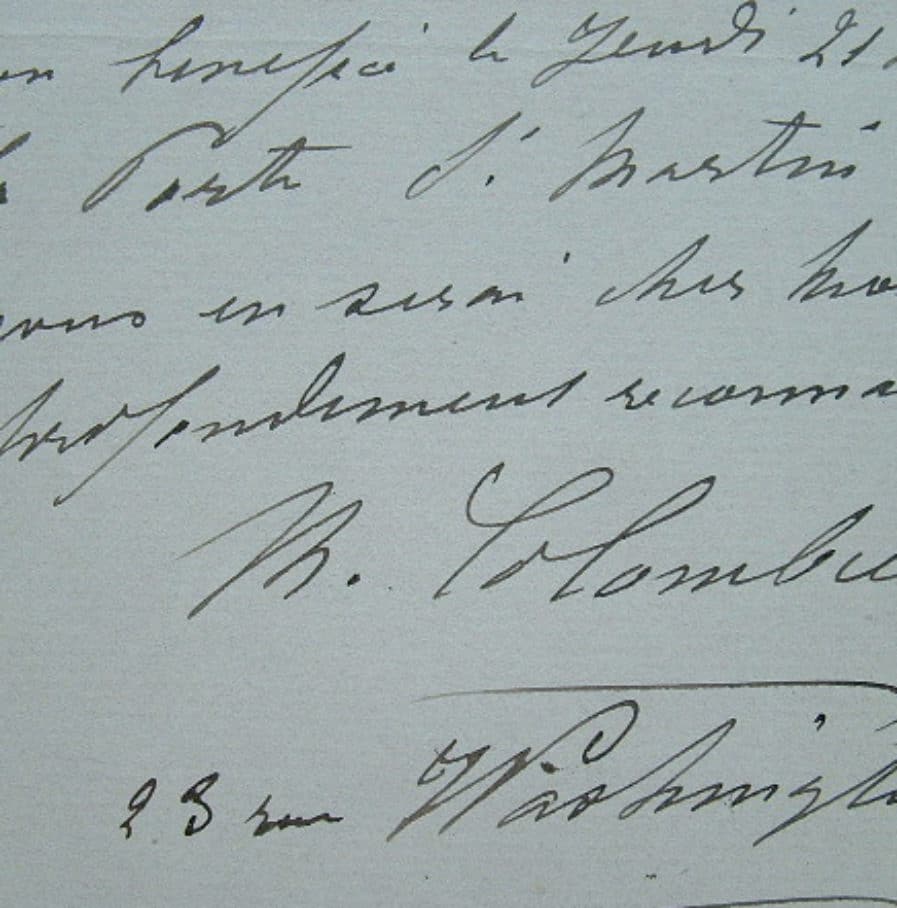 on bénéfice le Jeudi 21
la Porte St. Martin
vous en serai chez
profondement reconna
M. Colombie
23 rue Washingt